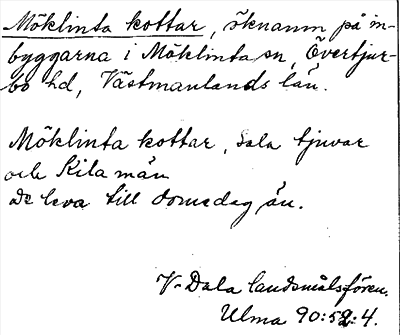 Möklinta kottar, öknamn på in-
byggarna i Möklinta sn, Övertjur-
bo hd, Västmanlands län.
Möklinta kottar, Sala tjuvar
och Kila män
de leva till domedag än.
V-Dala landsmålsfören.
Ulma 90:52:4.